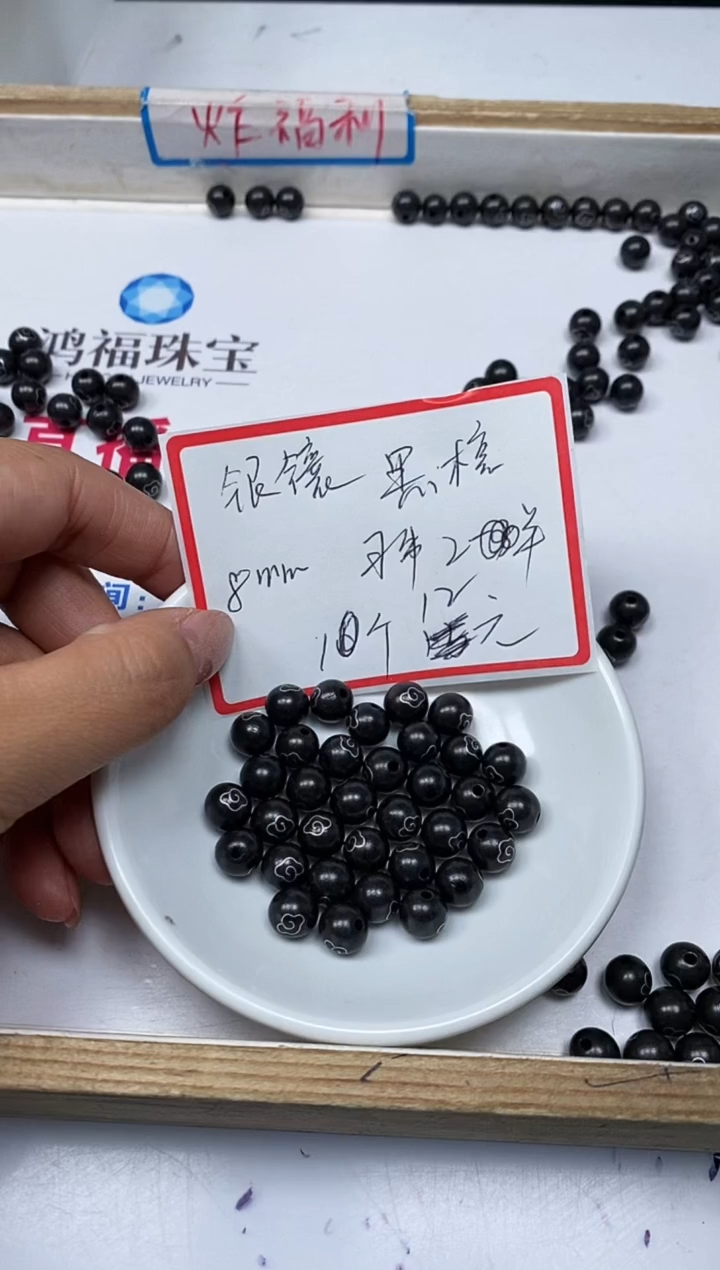 炸福利
鸿福珠宝
JEWELRY
直播
间：
银镶 黑檀
8mm
10个 12元